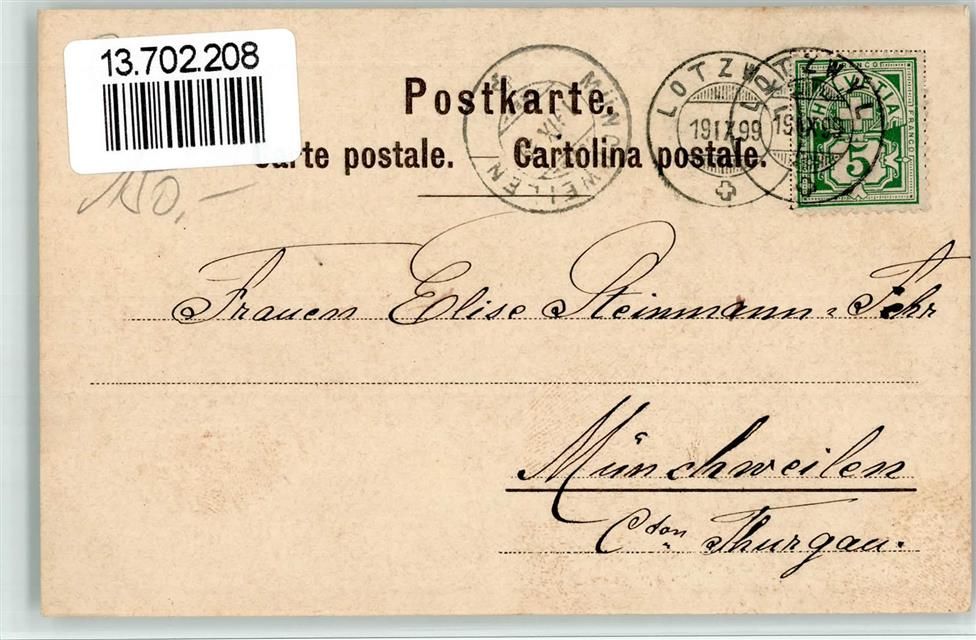 13.702.208
Postkarte.
Carte postale. — Cartolina postale.
MÜNCHWEILEN
LOTZWYL
19 IX 99
LOTZWYL
19 IX 99
FRANCO
HELVETIA
FRANCO
5
150,-
Frauen Elise Steinmann-Fehr
Münchweilen
Cton Thurgau.